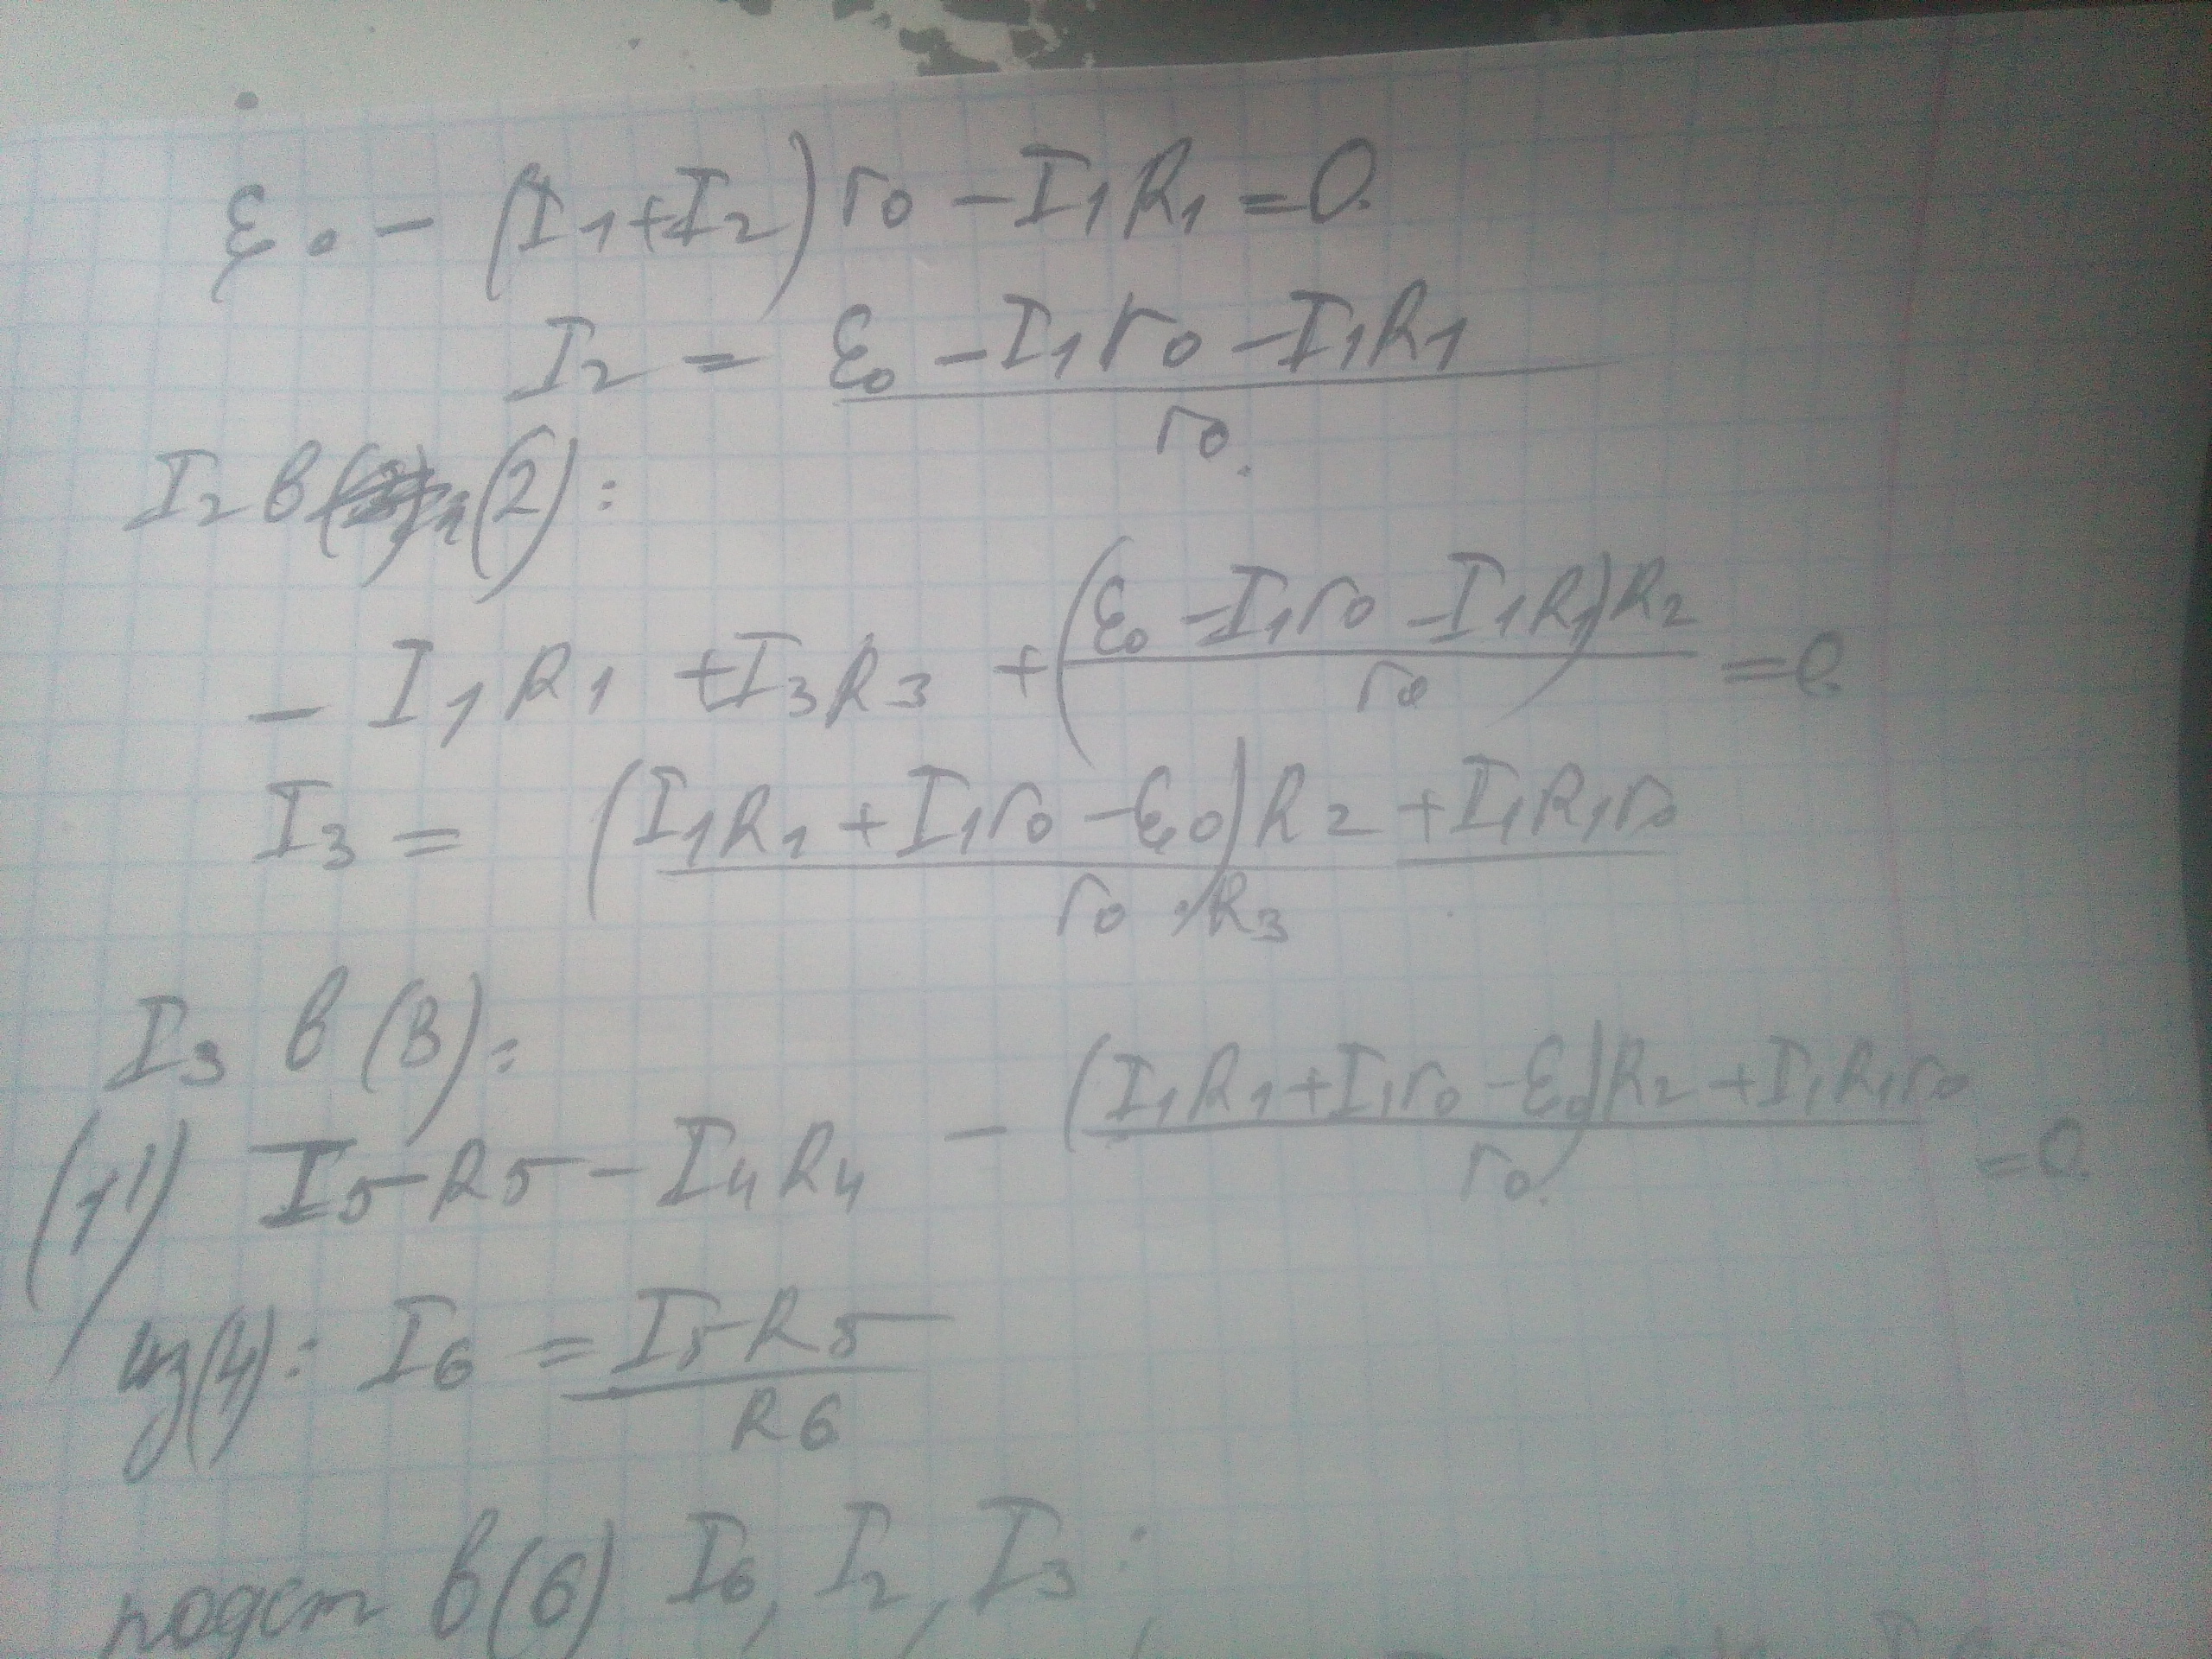 ε₀ − (I₁+I₂) r₀ − I₁R₁ = 0.
I₂ = (ε₀ − I₁r₀ − I₁R₁) / r₀.
I₂ в (2):
− I₁R₁ + I₃R₃ + (ε₀ − I₁r₀ − I₁R₁)R₂ / r₀ = 0.
I₃ = (I₁R₁ + I₁r₀ − ε₀)R₂ + I₁R₁r₀ / r₀ · R₃
I₃ в (3):
(1') I₅R₅ − I₄R₄ − (I₁R₁ + I₁r₀ − ε₀)R₂ + I₁R₁r₀ / r₀. = 0.
из(4): I₆ = I₅R₅ / R₆
подст в (6) I₆, I₂, I₃: